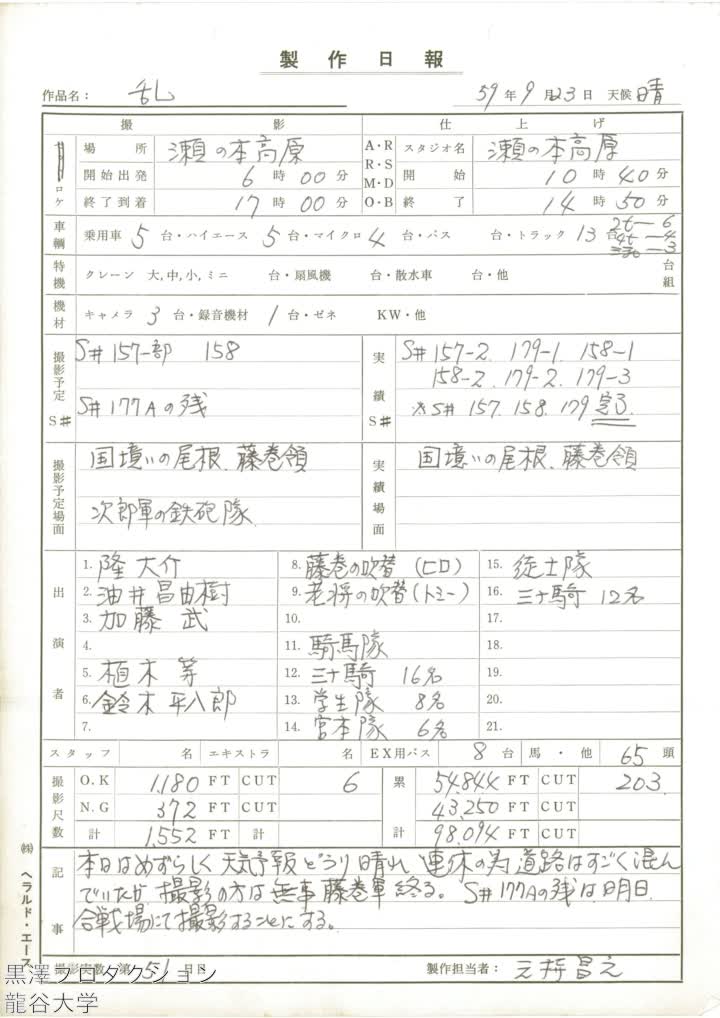 製作日報
作品名： 乱 59年9月23日 天候 晴
撮影 仕上げ
ロケ 場所 瀬の本高原 A・R スタジオ名 瀬の本高原
開始出発 6時00分 R・S 開始 10時40分
終了到着 17時00分 M・D O・B 終了 14時50分
車輌 乗用車 5 台・ハイエース 5 台・マイクロ 4 台・バス 台・トラック 13 台 2t―6
4t―4
―3
特機 クレーン 大,中,小,ミニ 台・扇風機 台・散水車 台・他 台組
機材 キャメラ 3 台・録音機材 1 台・ゼネ KW・他
撮影予定 S# S#157一部 158 実績 S# S#157-2. 179-1. 158-1
158-2. 179-2. 179-3
S#177Aの残 ※S# 157. 158. 179 完了
撮影予定場面 国境いの尾根、藤巻領 実績場面 国境いの尾根、藤巻領
次郎軍の鉄砲隊
出演者 1. 隆大介 8. 藤巻の吹替（ヒロ） 15. 徒士隊
2. 油井昌由樹 9. 老将の吹替（トミー） 16. 三十騎 12名
3. 加藤武 10. 17.
4. 11. 騎馬隊 18.
5. 植木等 12. 三十騎 16名 19.
6. 鈴木平八郎 13. 学生隊 8名 20.
7. 14. 宮本隊 6名 21.
スタッフ 名 エキストラ 名 EX用バス 8 台 馬・他 65 頭
撮影尺数 O.K 1,180 FT CUT 6 累計 54,844 FT CUT 203
N.G 372 FT 43,250 FT
計 1,552 FT 計 98,094 FT CUT
記事 本日はめずらしく天気予報どうり晴れ 連休の為道路はすごく混ん
でいたが 撮影の方は無事藤巻軍終る。 S#177Aの残は明日
合戦場にて撮影することにする。
撮影実数 第 51 日目 製作担当者： 元持昌之
㈱ヘラルド・エース
黒澤プロダクション
龍谷大学